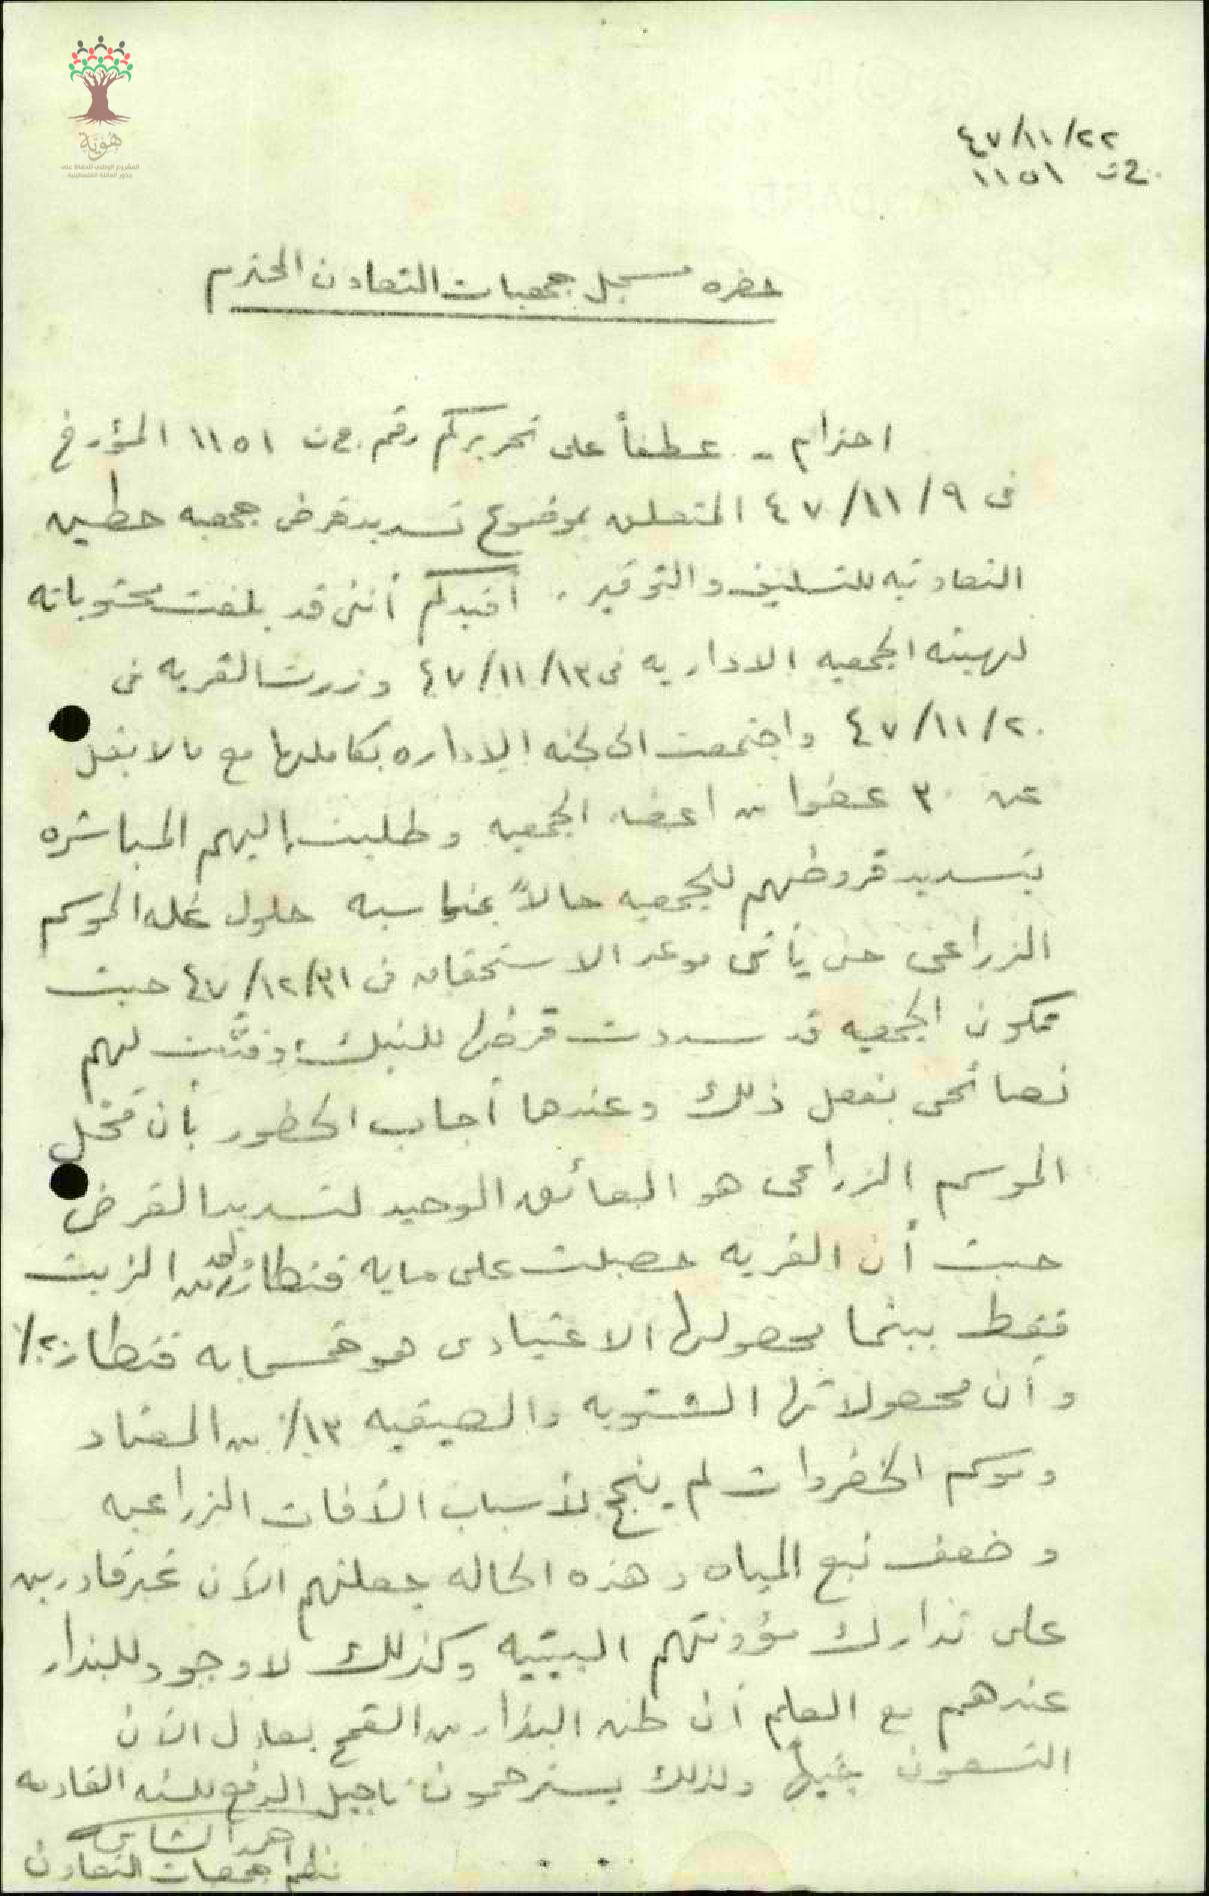 هُويَّة
المشروع الوطني للحفاظ على
جذور العائلة الفلسطينية
٤٧/١١/٢٢
ج ت ١١٥١
حضره مسجل جمعيات التعاون المحترم
احترام - عطفاً على تحريركم رقم ج ت ١١٥١ المؤرخ
في ٤٧/١١/٩ المتعلق بموضوع تسديد قرض جمعيه حطين
التعاونيه للتسليف والتوفير . أفيدكم أنني قد بلغت محتوياته
لهيئه الجمعيه الاداريه في ٤٧/١١/١٣ وزرت القريه في
٤٧/١١/٢٠ واجتمعت الى لجنه الاداره بكاملها مع ما لا يقل
عن ٣٠ عضوا من اعضاء الجمعيه وطلبت إليهم المباشره
بتسديد قروضهم للجمعيه حالاً بمناسبه حلول غله الموسم
الزراعي حتى يأتي موعد الاستحقاق في ٤٧/١٢/٣١ حيث
تكون الجمعيه قد سددت قرضها للبنك لهم
نصائحي بفعل ذلك وعندها أجاب الحضور بأن محل
الموسم الزراعي هو العائق الوحيد لتسديد القرض
حيث أن القريه حصلت على مايه قنطار من الزيت
فقط بينما محصولها الاعتيادي هو خمسمايه قنطار ٢٠٪
وأن محصولاتها الشتويه والصيفيه ١٣٪ من المعتاد
وموسم الخضروات لم ينجح لأسباب الآفات الزراعيه
وضعف نبع المياه وهذه الحاله جعلتهم الآن غير قادرين
على تدارك مؤونتهم البيتيه وكذلك لا وجود للبذار
عندهم مع العلم أن طن البذار من القمح يعادل الآن
التسعون جنيهاً ولذلك يسترحمون تاجيل الدفع للسنه القادمه
احمد
جمعيات التعاون